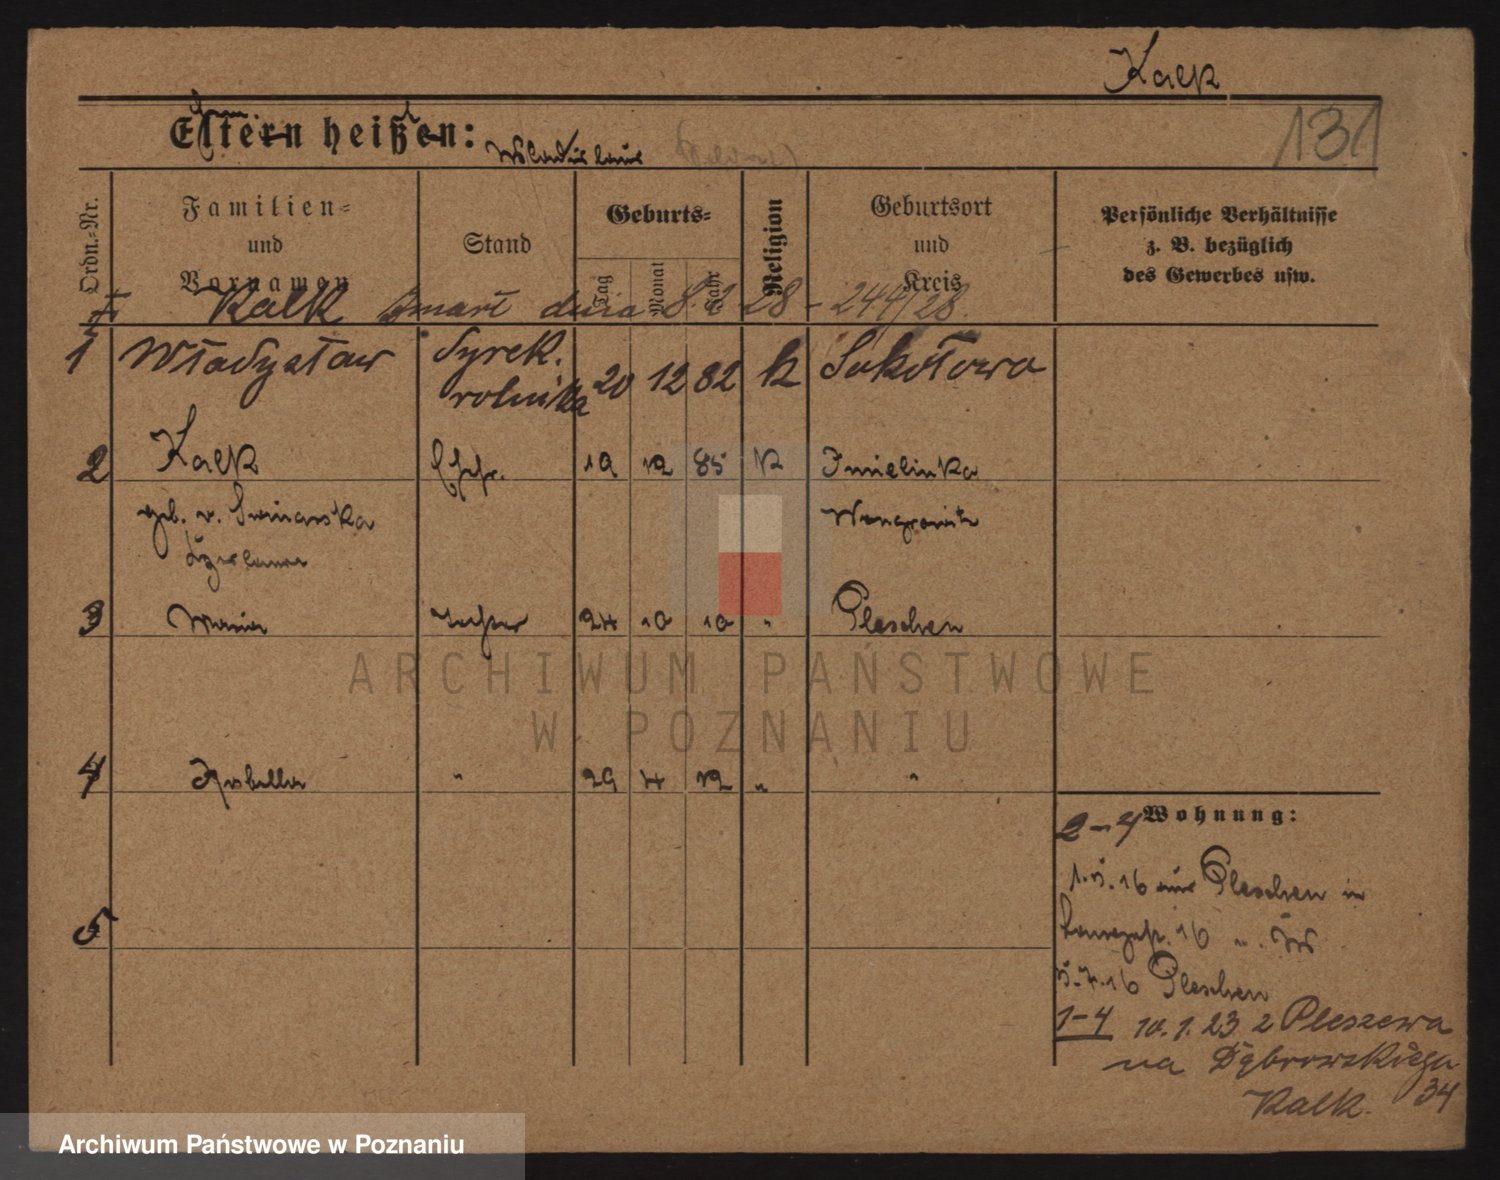 Kalk
131
Eltern heißen:
Wladislaus
Ordn.-Nr.
Familien-
und
Vornamen
Stand
Geburts-
Tag
Monat
Jahr
Religion
Geburtsort
und
Kreis
Persönliche Verhältnisse
z. B. bezüglich
des Gewerbes usw.
Kalk zmarł dnia 8. 28 - 244/28.
1 Władysław dyrek. 20 12 82 k Sokołowo
2 Kalk Ehefr. 19 12 85 k Imielinka
geb. v. Wongrowitz
3 Maria Tochter 24 10 10 " Pleschen
4 Isabella " 29 4 12 " "
5
Wohnung:
2-4
1.5.16 aus Pleschen in
16
5.7.16 Pleschen
1-4 10.1.23 z Pleszewa
na Dąbrowskiego
34
Kalk.
ARCHIWUM PAŃSTWOWE
W POZNANIU
Archiwum Państwowe w Poznaniu